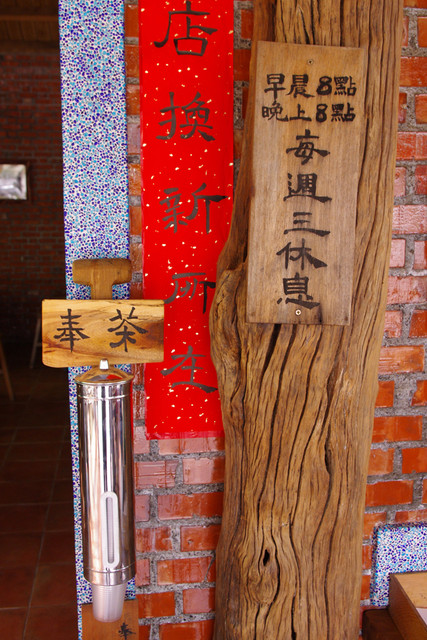 店換新所在
早晨8點
晚上8點
每週三休息
奉茶
奉